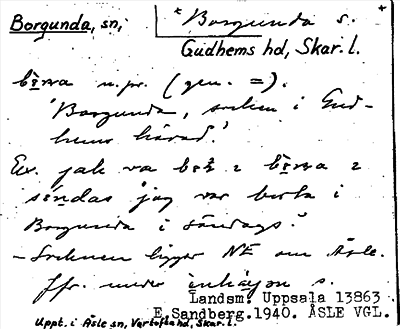 Borgunda, sn,
* Borgunda s. +
Gudhems hd, Skar. l.
n.pr. (gen. =).
'Borgunda, socken i Gud-
hems härad.'
Ex. jak va
'jag var borta i
Borgunda i söndags.'
– Socknen ligger NE om Åsle.
Jfr. under s.
Landsm. Uppsala 13863
E.Sandberg.1940. ÅSLE VGL.
Uppt. i Åsle sn, Vartofta hd, Skar. l.